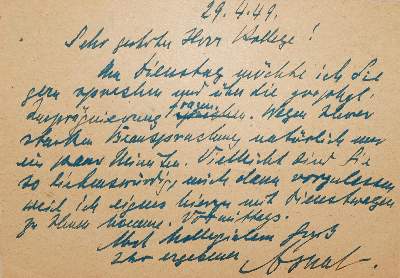 29.4.49.
Sehr geehrter Herr Kollege!
Am Dienstag möchte ich Sie
gern sprechen und über die
fragen
Wegen Ihrer
starken Beanspruchung natürlich nur
ein paar Minuten. Vielleicht sind Sie
so liebenswürdig mich dann vorzulassen
weil ich eigens hierzu mit Dienstwagen
zu Ihnen komme. Vormittags.
Mit kollegialem Gruß
Ihr ergebener